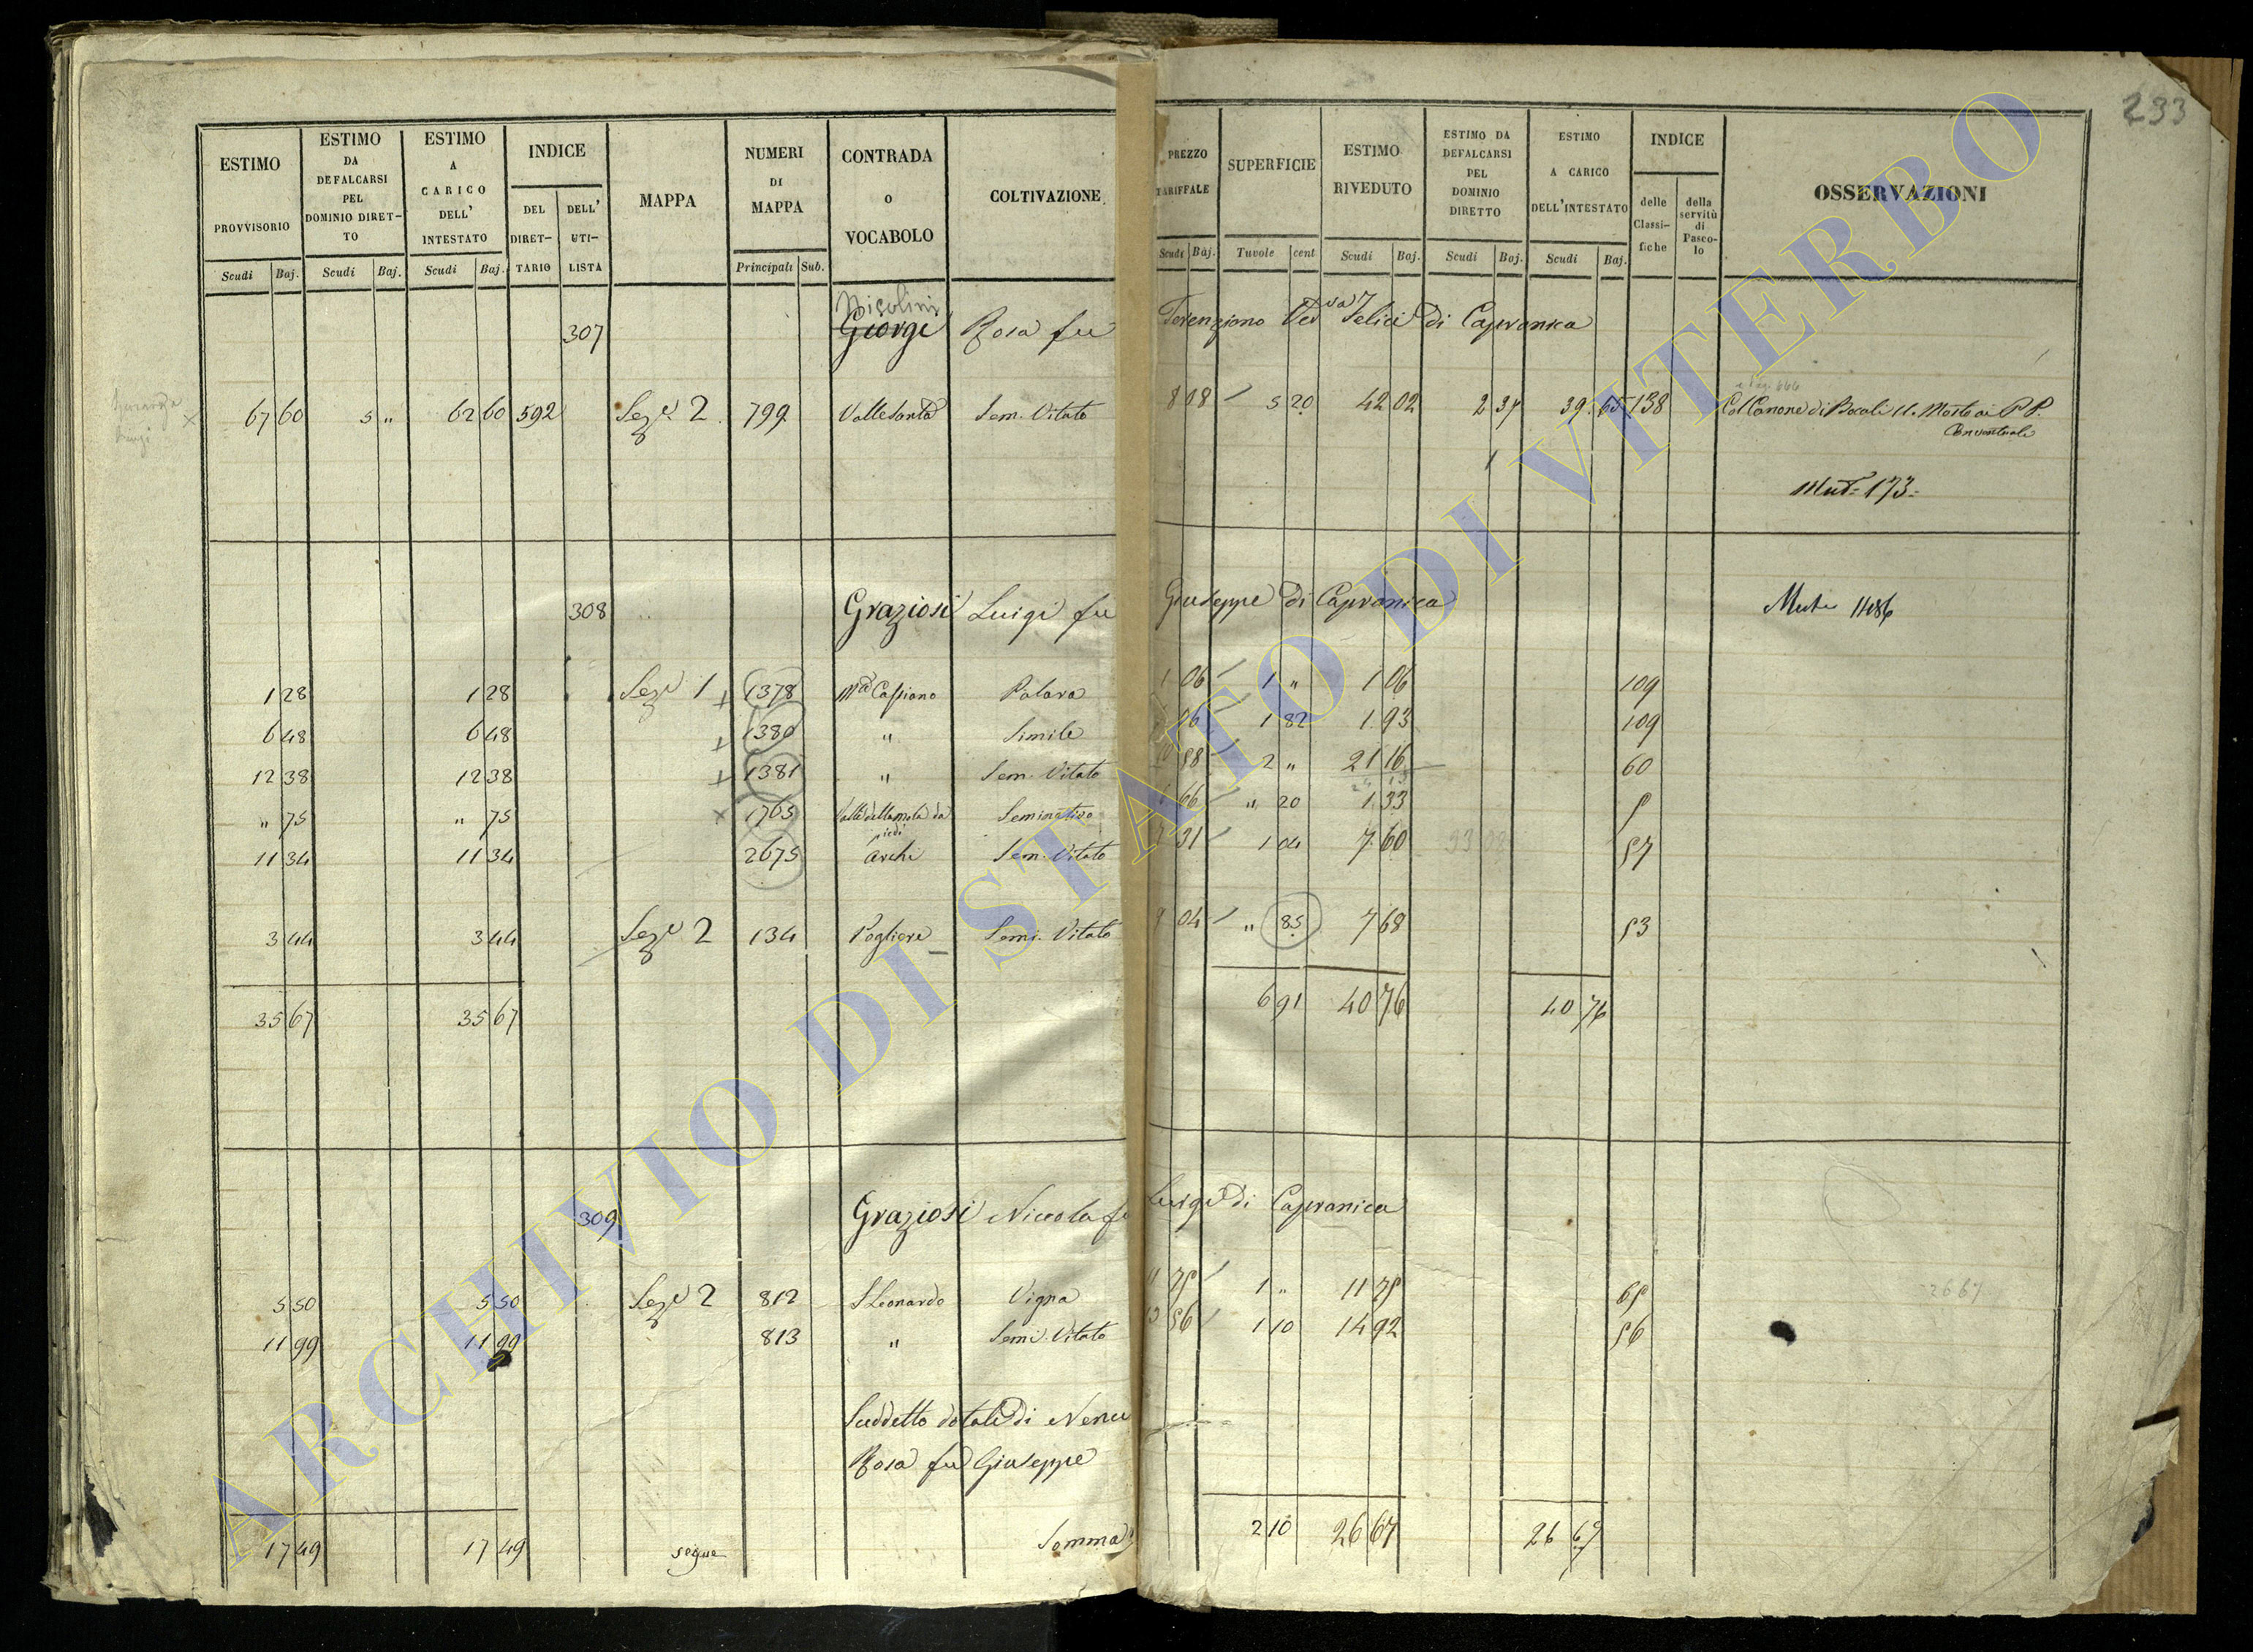 233
ESTIMO PROVVISORIO Scudi Baj.
ESTIMO DA DEFALCARSI PEL DOMINIO DIRETTO Scudi Baj.
ESTIMO A CARICO DELL' INTESTATO Scudi Baj.
INDICE DEL DIRETTARIO DELL' UTILISTA
MAPPA
NUMERI DI MAPPA Principali Sub.
CONTRADA o VOCABOLO
COLTIVAZIONE
PREZZO TARIFFALE Scudi Baj.
SUPERFICIE Tavole cent
ESTIMO RIVEDUTO Scudi Baj.
ESTIMO DA DEFALCARSI PEL DOMINIO DIRETTO Scudi Baj.
ESTIMO A CARICO DELL'INTESTATO Scudi Baj.
INDICE delle Classifiche della servitù di Pascolo
OSSERVAZIONI
Nisolini
307 Giorgi Rosa fu Terenziano Ved va Felici di Capranica
67 60 5 " 62 60 592 Sez e 2 799 Valle Santa Sem. Vitato 8 08 5 20 42 02 2 37 39 65 138 Col Canone di Bocali 11. Mosto ai PP.
Conventuali
Mut= 173=
308 Graziosi Luigi fu Giuseppe di Capranica Mut 1486
1 28 1 28 Sez e 1 1378 Casiano Palara 1 06 1 " 1 06 109
6 48 6 48 1380 " Simile 06 1 82 1 93 109
12 38 12 38 1381 " Sem. Vitato 10 58 2 " 21 16 60
" 75 " 75 1765 Valle della mola da piedi Seminativo 6 66 " 20 1 33
11 34 11 34 2675 Archi Sem. Vitato 7 31 1 04 7 60 57
3 44 3 44 Sez e 2 134 Pogliere Semi. Vitato 9 04 " 85 7 68 53
35 67 35 67 6 91 40 76 40 76
309 Graziosi Niccola fu Luigi di Capranica
5 50 5 50 Sez e 2 812 S Leonardo Vigna 11 75 1 " 11 75 65
11 99 11 99 813 " Semi. Vitato 13 56 1 10 14 92 56
2667
Suddetto dotali di Nenci
Rosa fu Giuseppe
17 49 17 49 segue Somma 2 10 26 67 26 67
ARCHIVIO DI STATO DI VITERBO